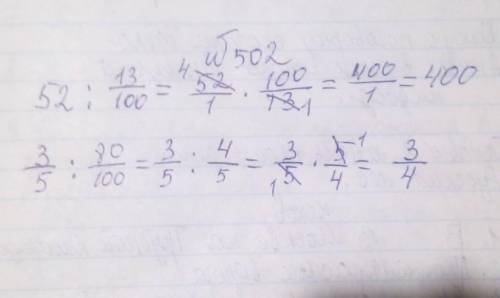 №502
52 : 13/100 = 52/1 · 100/13 = 400/1 = 400
3/5 : 80/100 = 3/5 : 4/5 = 3/5 · 5/4 = 3/4